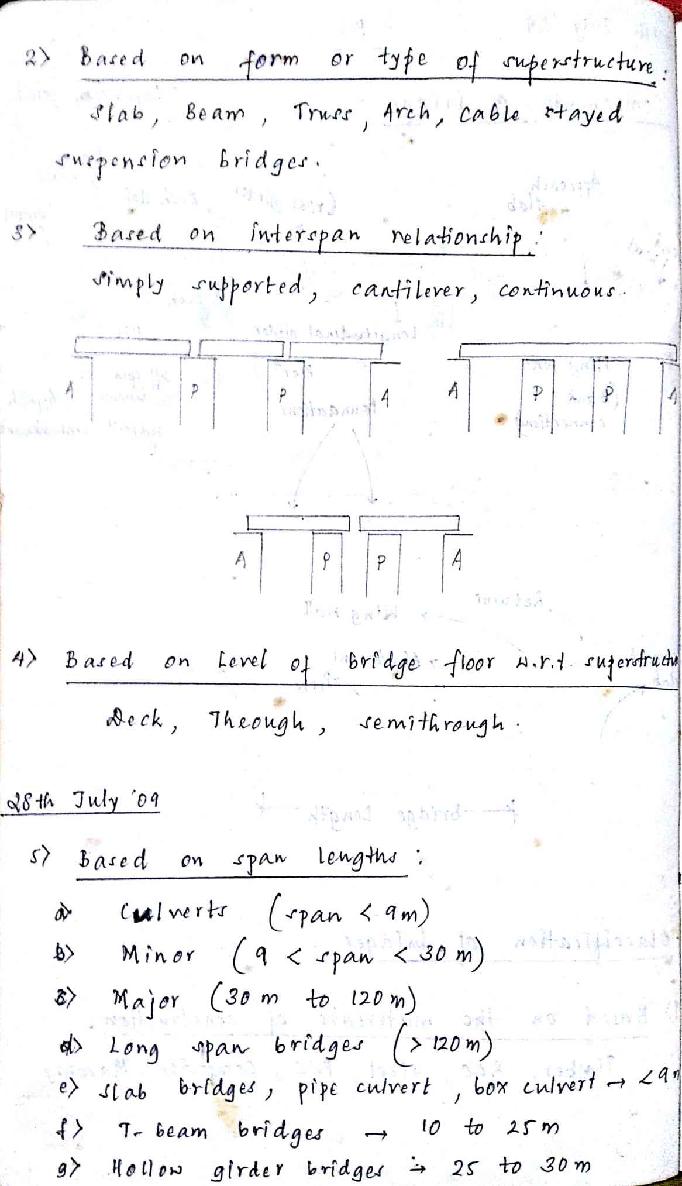 2> Based on form or type of superstructure :
Slab, Beam, Truss, Arch, Cable stayed
suspension bridges.
3> Based on interspan relationship :
Simply supported, cantilever, continuous.
A P P A A P P A
A P P A
4> Based on Level of bridge floor w.r.t. superstructu
Deck, Theough, semithrough.
28th July '09
5) Based on span lengths :
a> Culverts (span < 9m)
b> Minor (9 < span < 30 m)
c> Major (30 m to 120 m)
d> Long span bridges (> 120 m)
e> slab bridges, pipe culvert, box culvert → <9m
f> T-beam bridges → 10 to 25 m
g> Hollow girder bridges → 25 to 30 m